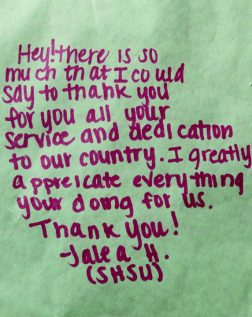 Hey! there is so
much that I could
say to thank you
for you all your
service and dedication
to our country. I greatly
appreicate everything
your doing for us.
Thank you!
-Jalea H.
(SHSU)